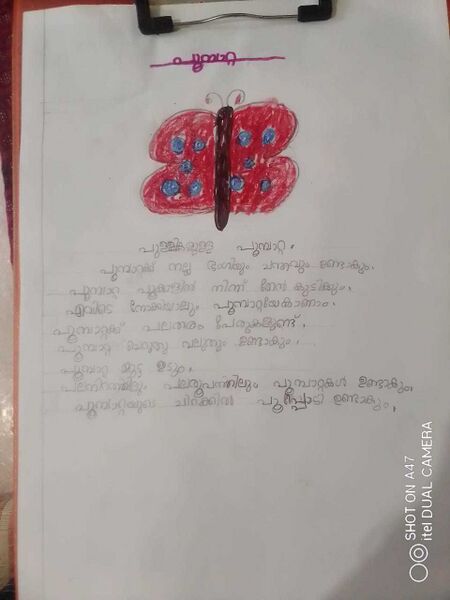 പൂമ്പാറ്റ
പുള്ളികളുള്ള പൂമ്പാറ്റ.
പൂമ്പാറ്റക്ക് നല്ല ഭംഗിയും ചന്തവും ഉണ്ടാകും.
പൂമ്പാറ്റ പൂക്കളിൽ നിന്ന് തേൻ കുടിക്കും.
എവിടെ നോക്കിയാലും പൂമ്പാറ്റയേകാണാം.
പൂമ്പാറ്റക്ക് പലതരം പേരുകളുണ്ട്.
പൂമ്പാറ്റ ചെറുതു വലുതും ഉണ്ടാകും.
പൂമ്പാറ്റ മുട്ട ഇടും.
പലനിറത്തിലും പലരൂപത്തിലും പൂമ്പാറ്റകൾ ഉണ്ടാകും.
പൂമ്പാറ്റയുടെ ചിറകിൽ പൂമ്പൊടി ഉണ്ടാകും.
SHOT ON A47
itel DUAL CAMERA